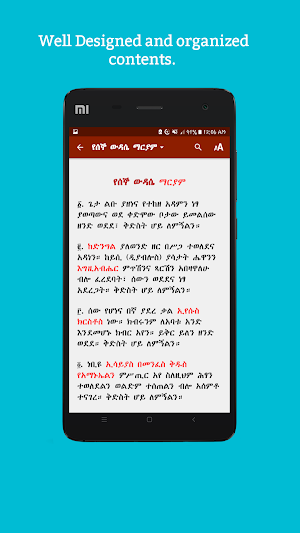 Well Designed and organized
contents.
የሰኞ ውዳሴ ማርያም
AA
የሰኞ ውዳሴ ማርያም
፩. ጌታ ልቡ ያዘነና የተከዘ አዳምን ነፃ
ያወጣውና ወደ ቀድሞው ቦታው ይመልሰው
ዘንድ ወደደ፤ ቅድስት ሆይ ለምኝልን።
፪. ከድንግል ያለወንድ ዘር በሥጋ ተወለደና
አዳነን። ከይሲ (ዲያብሎስ) ያሳታት ሔዋንን
እግዚአብሔር ምጥሽንና ጻርሽን አበዛዋለሁ
ብሎ ፈረደባት፤ ሰውን ወደደና ነፃ
አደረጋት። ቅድስት ሆይ ለምኝልን።
፫. ሰው የሆነና በኛ ያደረ ቃል ኢየሱስ
ክርስቶስ ነው። ክብሩንም ለአባቱ አንድ
እንደመሆኑ ክብር አየን። ይቅር ይለን ዘንድ
ወደደ። ቅድስት ሆይ ለምኝልን።
፬. ነቢዩ ኢሳይያስ በመንፈስ ቅዱስ
የአማኑኤልን ምሥጢር አየ ስለዚህም ሕፃን
ተወለደልን ወልድም ተሰጠልን ብሎ አሰምቶ
ተናገረ። ቅድስት ሆይ ለምኝልን።